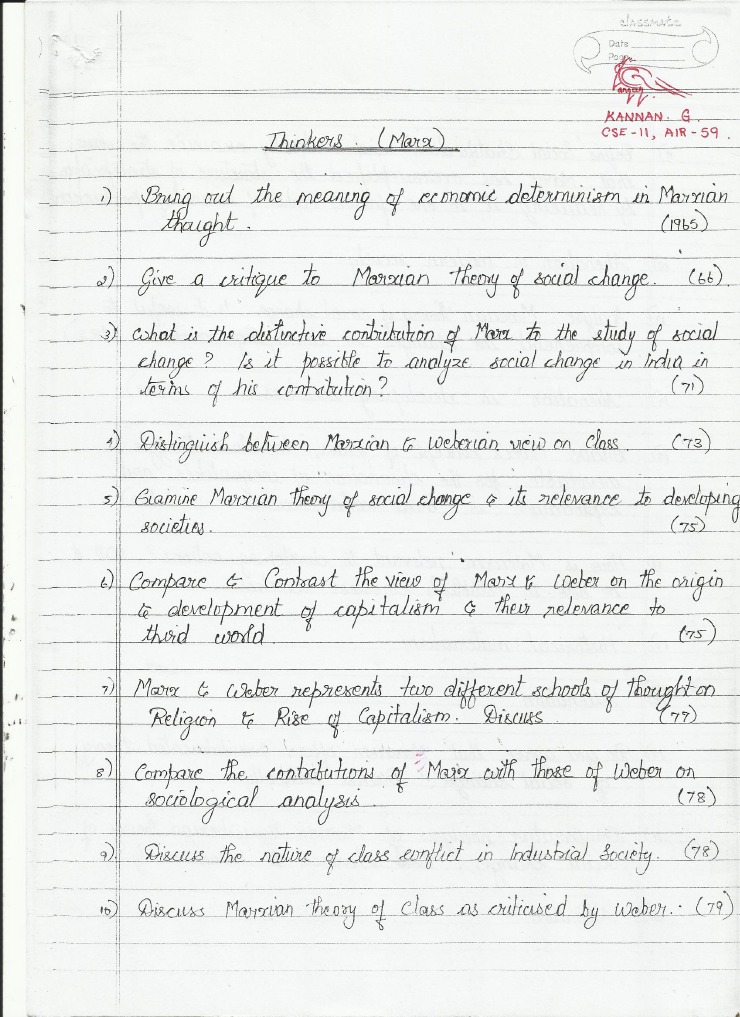 classmate
Date
Page
KANNAN. G.
CSE-11, AIR-59.
Thinkers. (Marx)
1) Bring out the meaning of economic determinism in Marxian
thought. (1965)
2) Give a critique to Marxian theory of social change. (66).
3) What is the distinctive contribution of Marx to the study of social
change? Is it possible to analyze social change in India in
terms of his contribution? (71)
4) Distinguish between Marxian & Weberian view on Class. (73)
5) Examine Marxian theory of social change & its relevance to developing
societies. (75)
6) Compare & Contrast the view of Marx & Weber on the origin
& development of capitalism & their relevance to
third world (75)
7) Marx & Weber represents two different schools of thought on
Religion & Rise of Capitalism. Discuss (77)
8) Compare the contributions of Marx with those of Weber on
sociological analysis. (78)
9). Discuss the nature of class conflict in Industrial Society. (78)
10) Discuss Marxian theory of Class as criticised by Weber. (79)